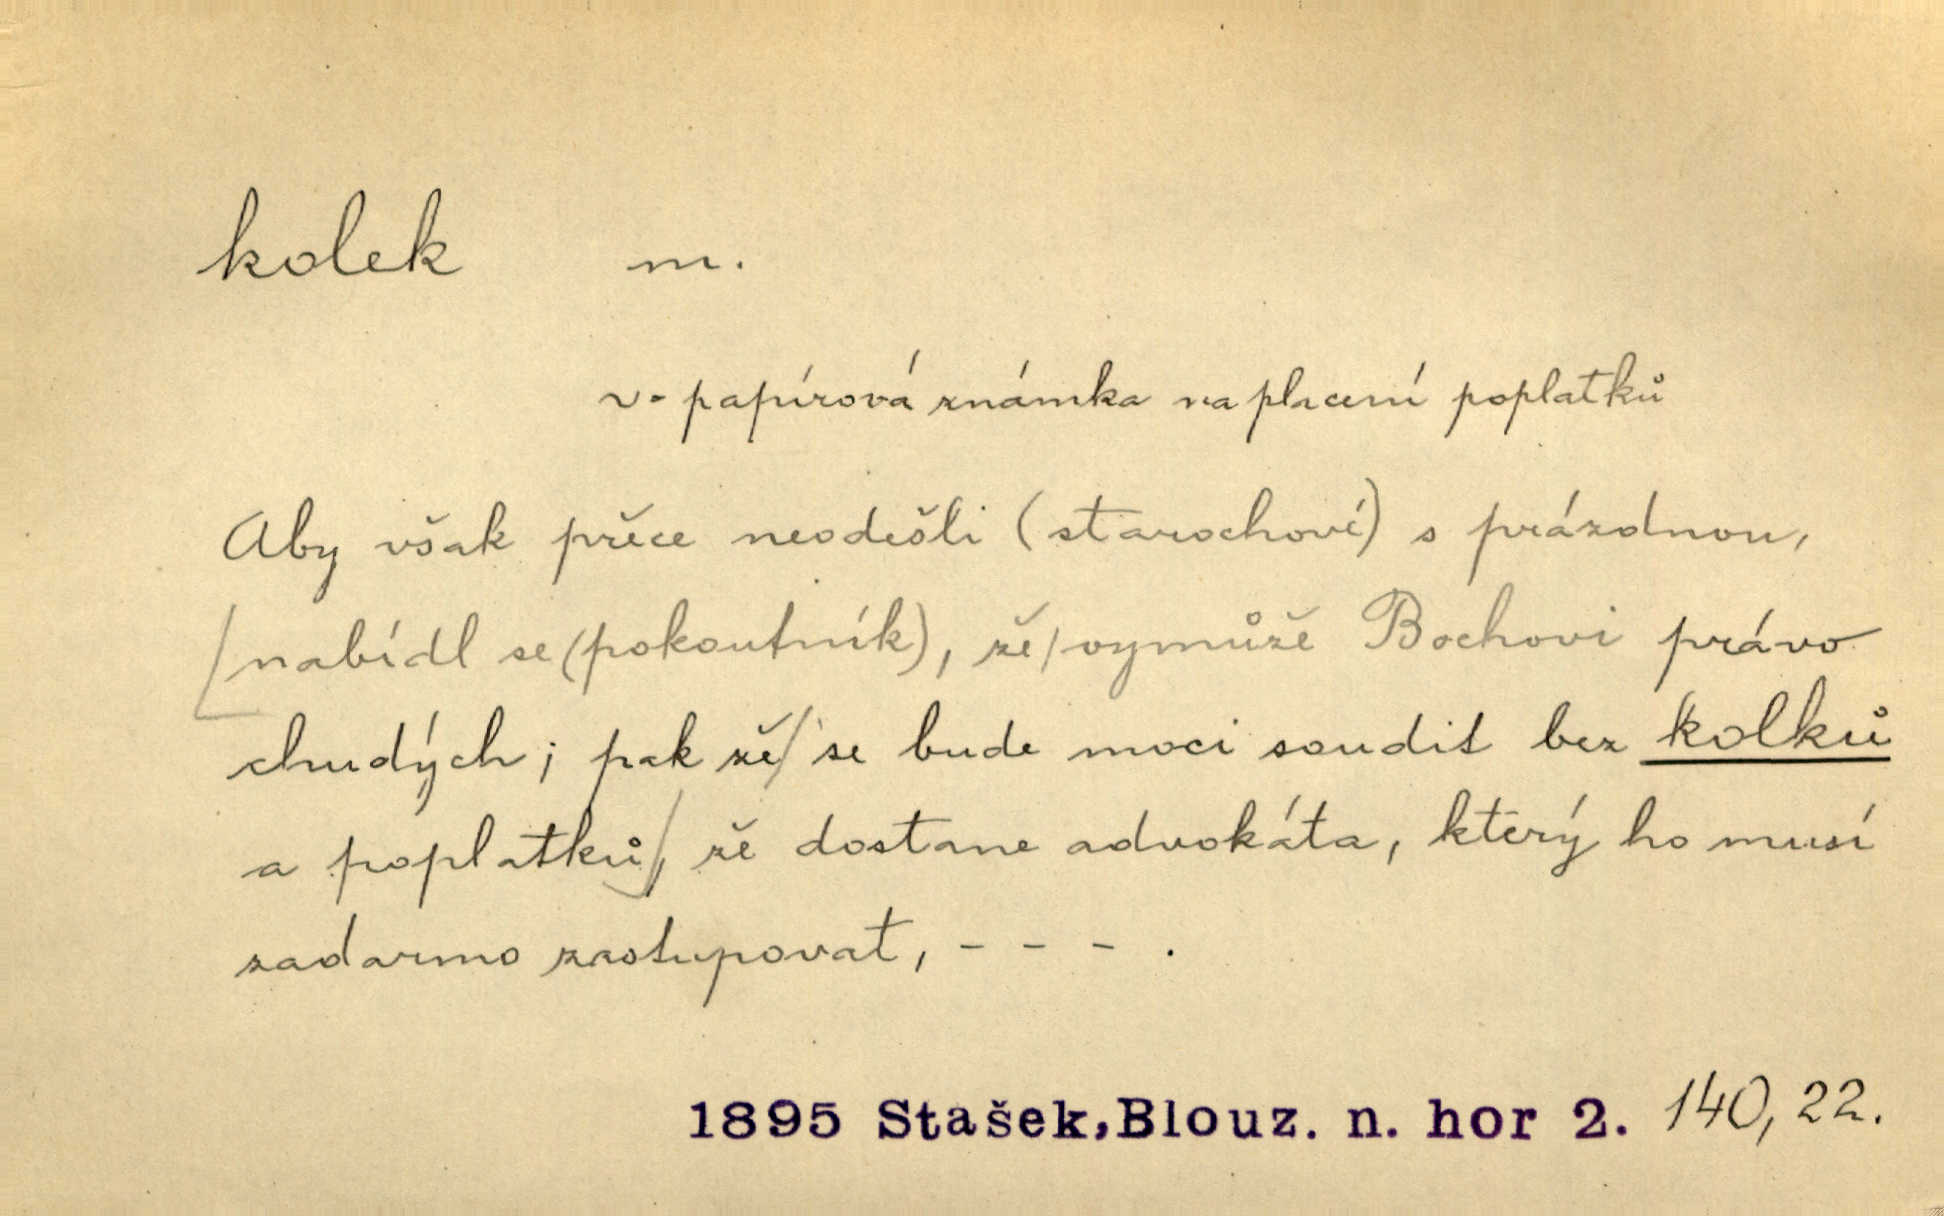 kolek m.
v. papírová známka na placení poplatků
Aby však přece neodešli (starochové) s prázdnou,
[nabídl se (pokoutník), že/vymůže Bochovi právo
chudých; pak že/se bude moci soudit bez kolků
a poplatků/, že dostane advokáta, který ho musí
zadarmo zastupovat, - - - .
1895 Stašek, Blouz. n. hor 2. 140, 22.